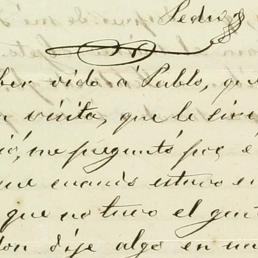 Pedro
ber vido á Pablo, que
n visita, que le sir
ió, me preguntó por é
ue cuando estuvo en
que no tuvo el gust
don dije algo en un